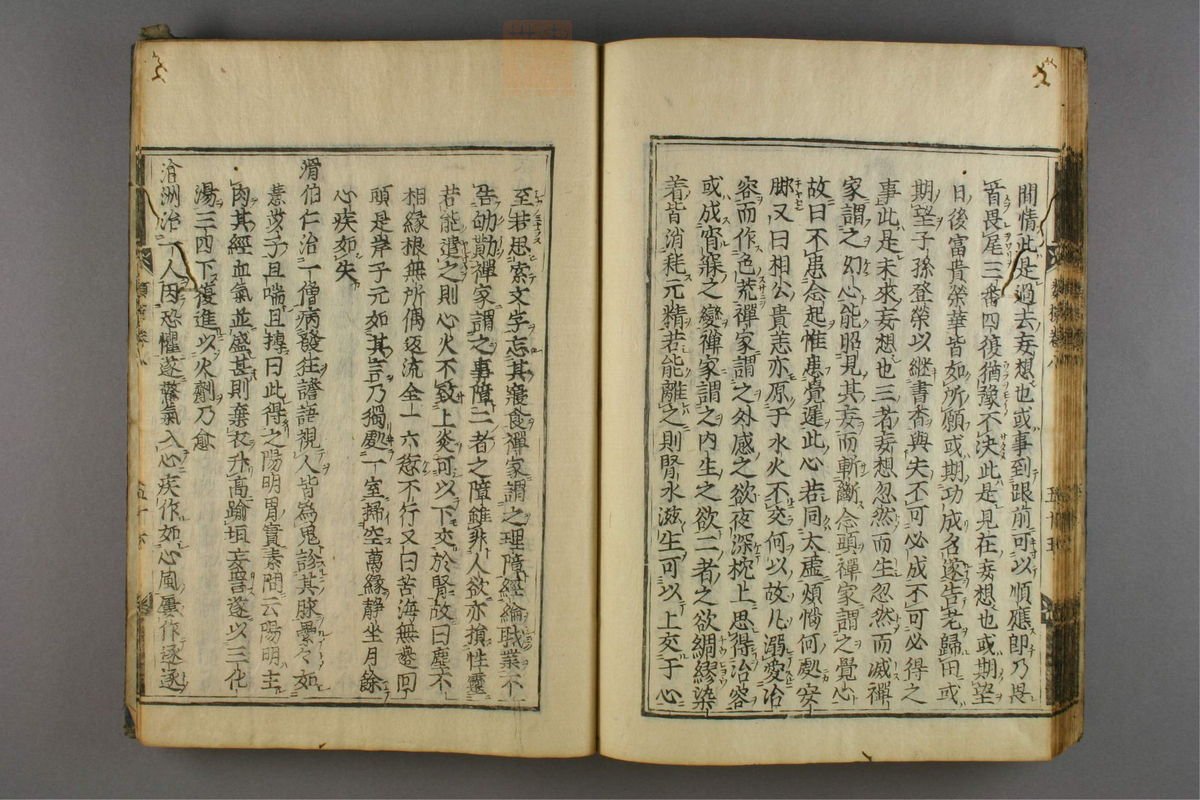 間情此是過去妄想也或事到跟前可以順應即乃畏
首畏尾三番四復猶豫不決此是見在妄想也或期望
日後富貴榮華皆如所願或期功成名遂告老歸田或
期望子孫登榮以継書香與夫不可必成不可必得之
事此是未來妄想也三者妄想忽然而生忽然而滅禪
家謂之幻心能照見其妄而斬斷念頭禪家謂之覺心
故曰不患念起惟患覺遲此心若同太虚煩惱何處安
脚又曰相公貴恙亦原于水火不交何以故凡溺愛冶
容而作色荒禪家謂之外感之欲夜深枕上思得冶容
或成宵寐之變禪家謂之内生之欲二者之欲綢繆染
着皆消耗元精若能離之則腎水滋生可以上交于心
至若思索文字忘其寢食禪家謂之理障經綸職業不
告劬勩禪家謂之事障二者之障雖非人欲亦損性靈
若能遣之則心火不致上炎可以下交於腎故曰塵不
相緣根無所偶返流全一六慾不行又曰苦海無邊回
頭是岸子元如其言乃獨處一室掃空萬緣静坐月餘
心疾如失
滑伯仁治一僧病發狂譫語視人皆爲鬼診其脉纍々如
薏苡子且喘且摶曰此得之陽明胃實素問云陽明主
肉其經血氣並盛甚則棄衣升高踰垣妄詈遂以三化
湯三四下復進以火劑乃愈
滄洲治一人因恐懼遂驚氣入心疾作如心風屢作逐逐